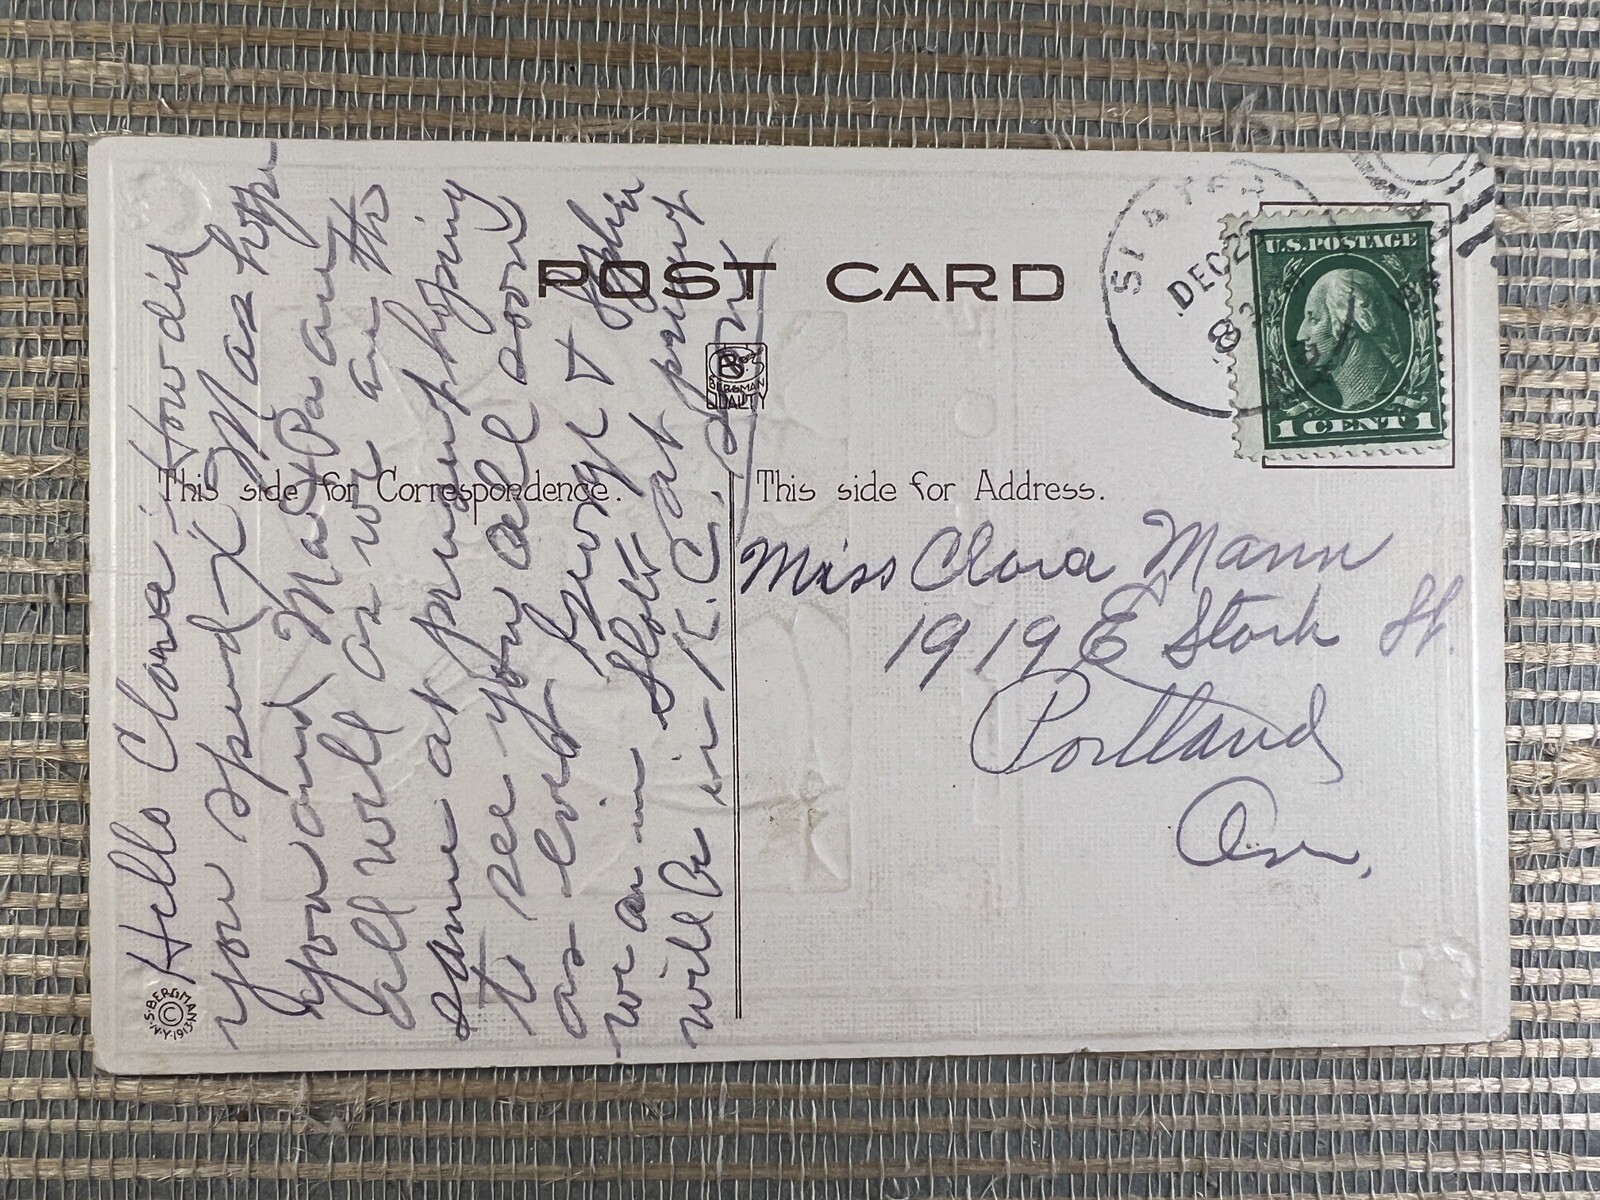 POST CARD
BERGMAN
QUALITY
This side for Correspondence.
This side for Address.
Hello Clara: How did
you spend X Mas hope
you and Ma & Pa are
all well as we are the
same at present hoping
to see you all soon
as ever George &
we are in at present
will be in K.C. soon
Miss Clara Mann
1919 E Stark St.
Portland
Ore.
SLATER
DEC 2
8
U.S. POSTAGE
1 CENT 1
© S. BERGMAN N.Y. 1913